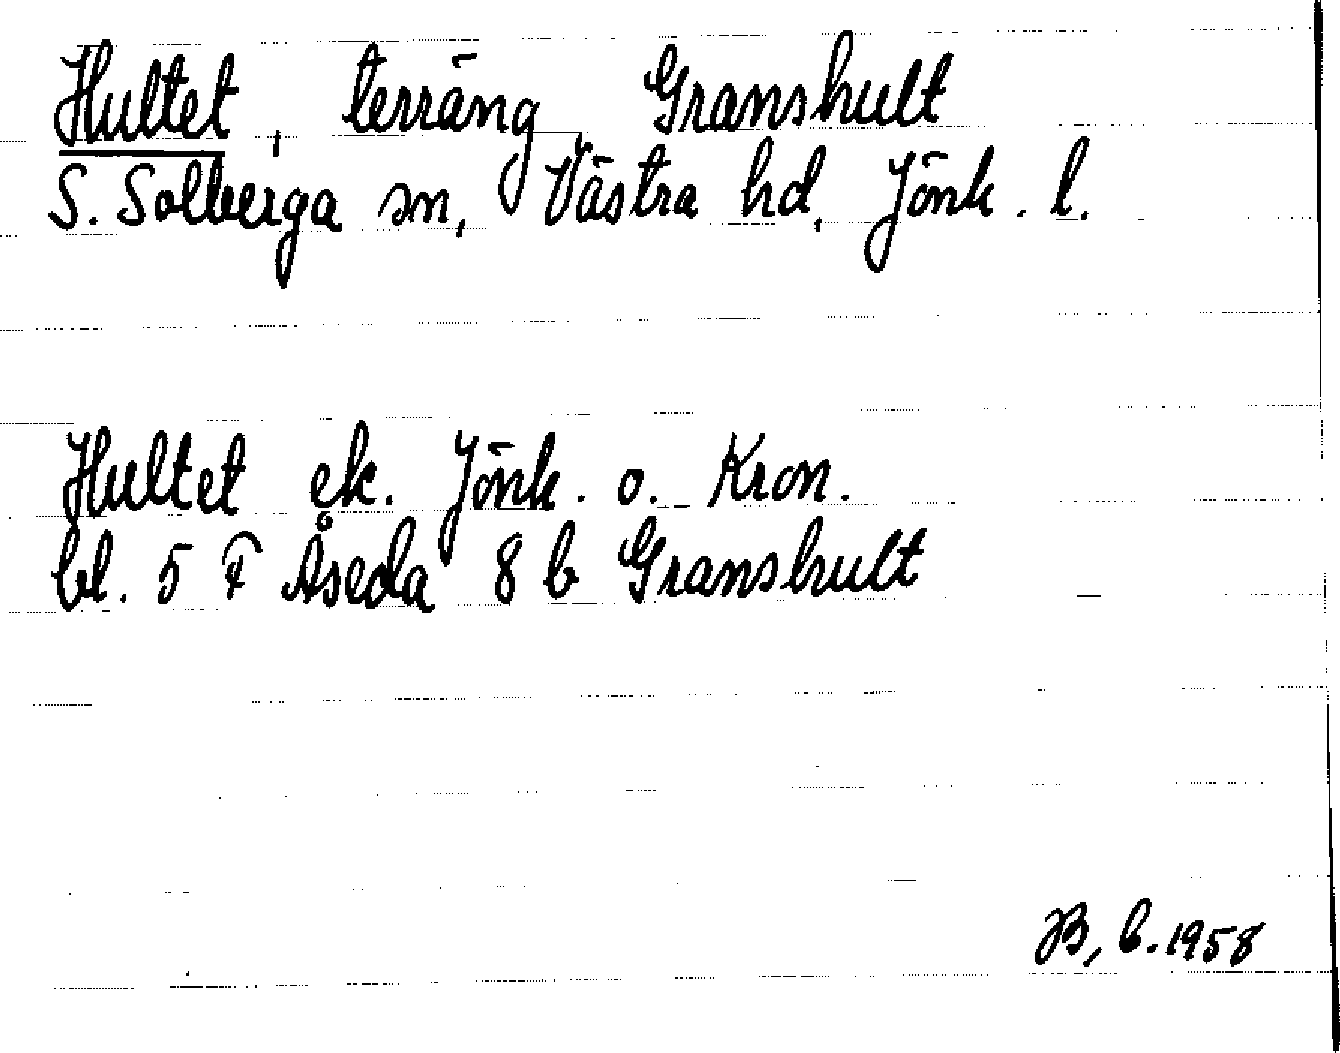 Hultet, terräng Granshult
S. Solberga sn, Västra hd, Jönk. l.
Hultet ek. Jönk. o. Kron.
bl. 5 F Åseda 8 b Granshult
JB, b. 1958